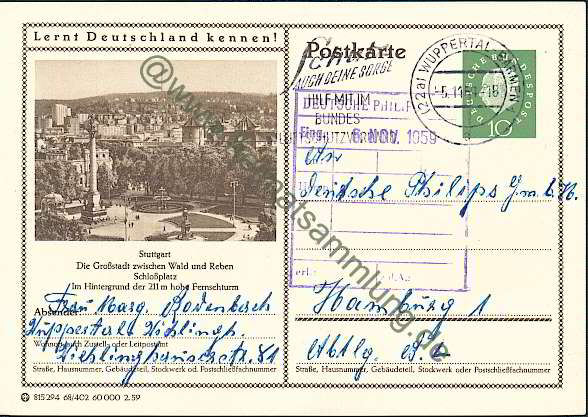 Lernt Deutschland kennen!
Stuttgart
Die Großstadt zwischen Wald und Reben
Schloßplatz
Im Hintergrund der 211 m hohe Fernsehturm
Absender:
Frau Marg. Bodenbach
Wuppertal-Vichlingh.
Wohnort, auch Zustell- oder Leitpostamt
Vichlinghauserstr. 81
Straße, Hausnummer, Gebäudeteil, Stockwerk od. Postschließfachnummer
815 294 68/402 60 000 2.59
Postkarte
AUCH DEINE SORGE
HILF MIT IM
BUNDES-
LUFTSCHUTZVERBAND
(22a) WUPPERTAL-BARMEN
DEUTSCHE BUNDESPOST
10
DEUTSCHE PHIL
6. NOV. 1959
An
Deutsche Philips G.m.b.H.
Hamburg 1
Abtlg.
Straße, Hausnummer, Gebäudeteil, Stockwerk oder Postschließfachnummer